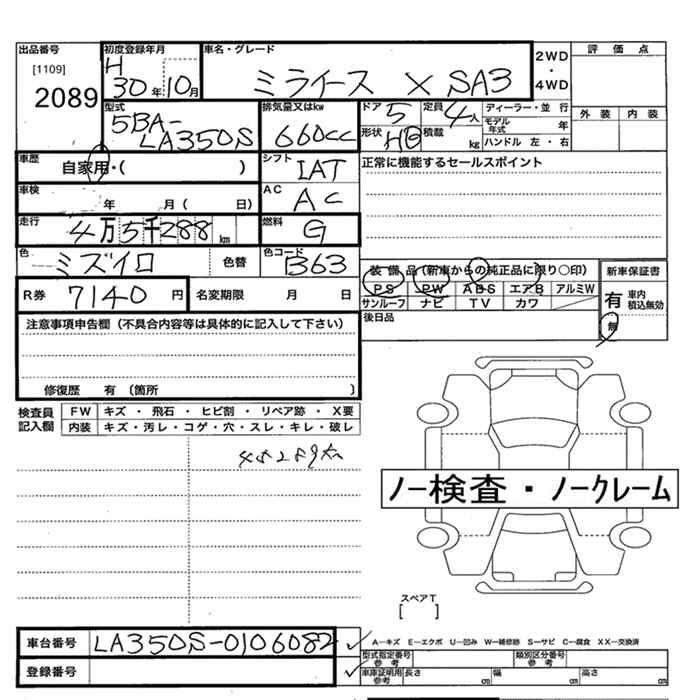 出品番号 初度登録年月 車名・グレード 2WD・4WD 評価点
[1109] H
2089 30年10月 ミライース X SA3
外装 内装
型式 排気量又はkw ドア 5 定員 4人 ディーラー・並行
5BA-LA350S 660cc 形状 HB 積載 kg モデル年式 年
ハンドル 左・右
車歴 自家用・( ) シフト IAT 正常に機能するセールスポイント
車検 年 月( 日) AC AC
走行 4万5千288km 燃料 G
色 ミズイロ 色替 色コード B63
装備品(新車からの純正品に限り○印) 新車保証書
PS PW ABS エアB アルミW 有 車内積込無効
サンルーフ ナビ TV カワ 無
R券 7140円 名変期限 月 日
後日品
注意事項申告欄(不具合内容等は具体的に記入して下さい)
修復歴 有〔箇所 〕
検査員記入欄 FW キズ・飛石・ヒビ割・リペア跡・X要
内装 キズ・汚レ・コゲ・穴・スレ・キレ・破レ
ノー検査・ノークレーム
スペアT
[ ]
車台番号 LA350S-0106082
A-キズ E-エクボ U-凹み W-補修跡 S-サビ C-腐食 XX-交換済
型式指定番号 参考 類別区分番号 参考
登録番号
車庫証明用 参考 長さ cm 幅 cm 高さ cm